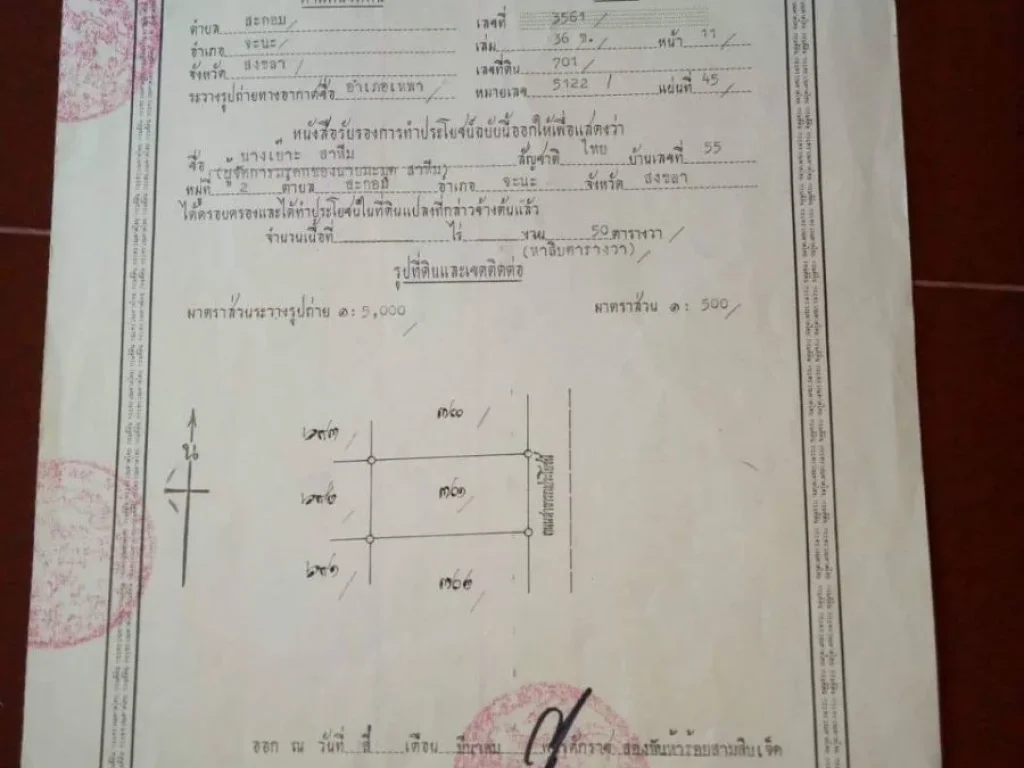 ตำบล สะกอม เลขที่ 3561/
อำเภอ จะนะ/ เล่ม 36 ข. / หน้า 11 /
จังหวัด สงขลา / เลขที่ดิน 701/
ระวางรูปถ่ายทางอากาศชื่อ อำเภอเทพา / หมายเลข 5122 / แผ่นที่ 45/
หนังสือรับรองการทำประโยชน์ฉบับนี้ออกให้เพื่อแสดงว่า
ชื่อ สาหีม สัญชาติ ไทย บ้านเลขที่ 55
หมู่ที่ 2 ตำบล สะกอม อำเภอ จะนะ จังหวัด สงขลา
ได้ครอบครองและได้ทำประโยชน์ในที่ดินแปลงที่กล่าวข้างต้นแล้ว
จำนวนเนื้อที่ ไร่ งาน 50 ตารางวา /
(หาสิบตารางวา)
รูปที่ดินและเขตติดต่อ
มาตราส่วนระวางรูปถ่าย ๑ : 5,000 / มาตราส่วน ๑ : 500 /
๗๐๐ /
น
๗๐๑
ถนนสาธารณประโยชน์
๗๐๒ /
ออก ณ วันที่ สี่ เดือน มีนาคม สองพันห้าร้อยสามสิบเจ็ด